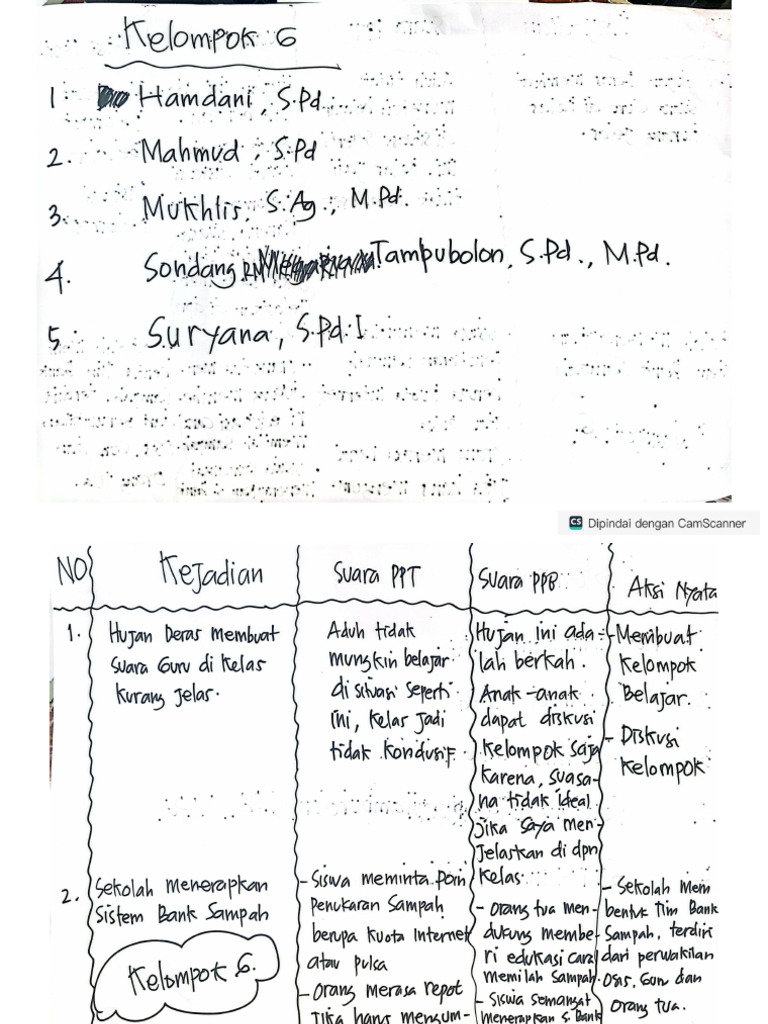 Kelompok 6
1. Hamdani, S.Pd
2. Mahmud, S.Pd
3. Mukhlis, S.Ag., M.Pd.
4. Sondang RM Tampubolon, S.Pd., M.Pd.
5. Suryana, S.Pd.I
CS Dipindai dengan CamScanner
NO
Kejadian
Suara PPT
Suara PPB
Aksi Nyata
1.
Hujan Deras Membuat
Suara Guru di Kelas
Kurang Jelas.
Aduh tidak
mungkin belajar
di situasi seperti
ini, Kelas Jadi
tidak Kondusif.
Hujan ini ada-
lah berkah.
Anak-anak
dapat diskusi
Kelompok Saja
Karena, suasa-
na tidak ideal
Jika Saya Men-
Jelaskan di dpn
Kelas.
- Membuat
Kelompok
Belajar.
- Diskusi
Kelompok
2.
Sekolah Menerapkan
Sistem Bank Sampah
Kelompok 6.
- Siswa meminta Poin
Penukaran Sampah
berupa Kuota Internet
atau pulsa
- Orang merasa repot
Jika harus mengum-
- Orang tua men-
dukung membe-
ri edukasi cara
memilah Sampah.
- Siswa Semangat
menerapkan S. Bank
- Sekolah Mem
bentuk Tim Bank
Sampah, terdiri
dari perwakilan
Osis, Guru dan
Orang tua.